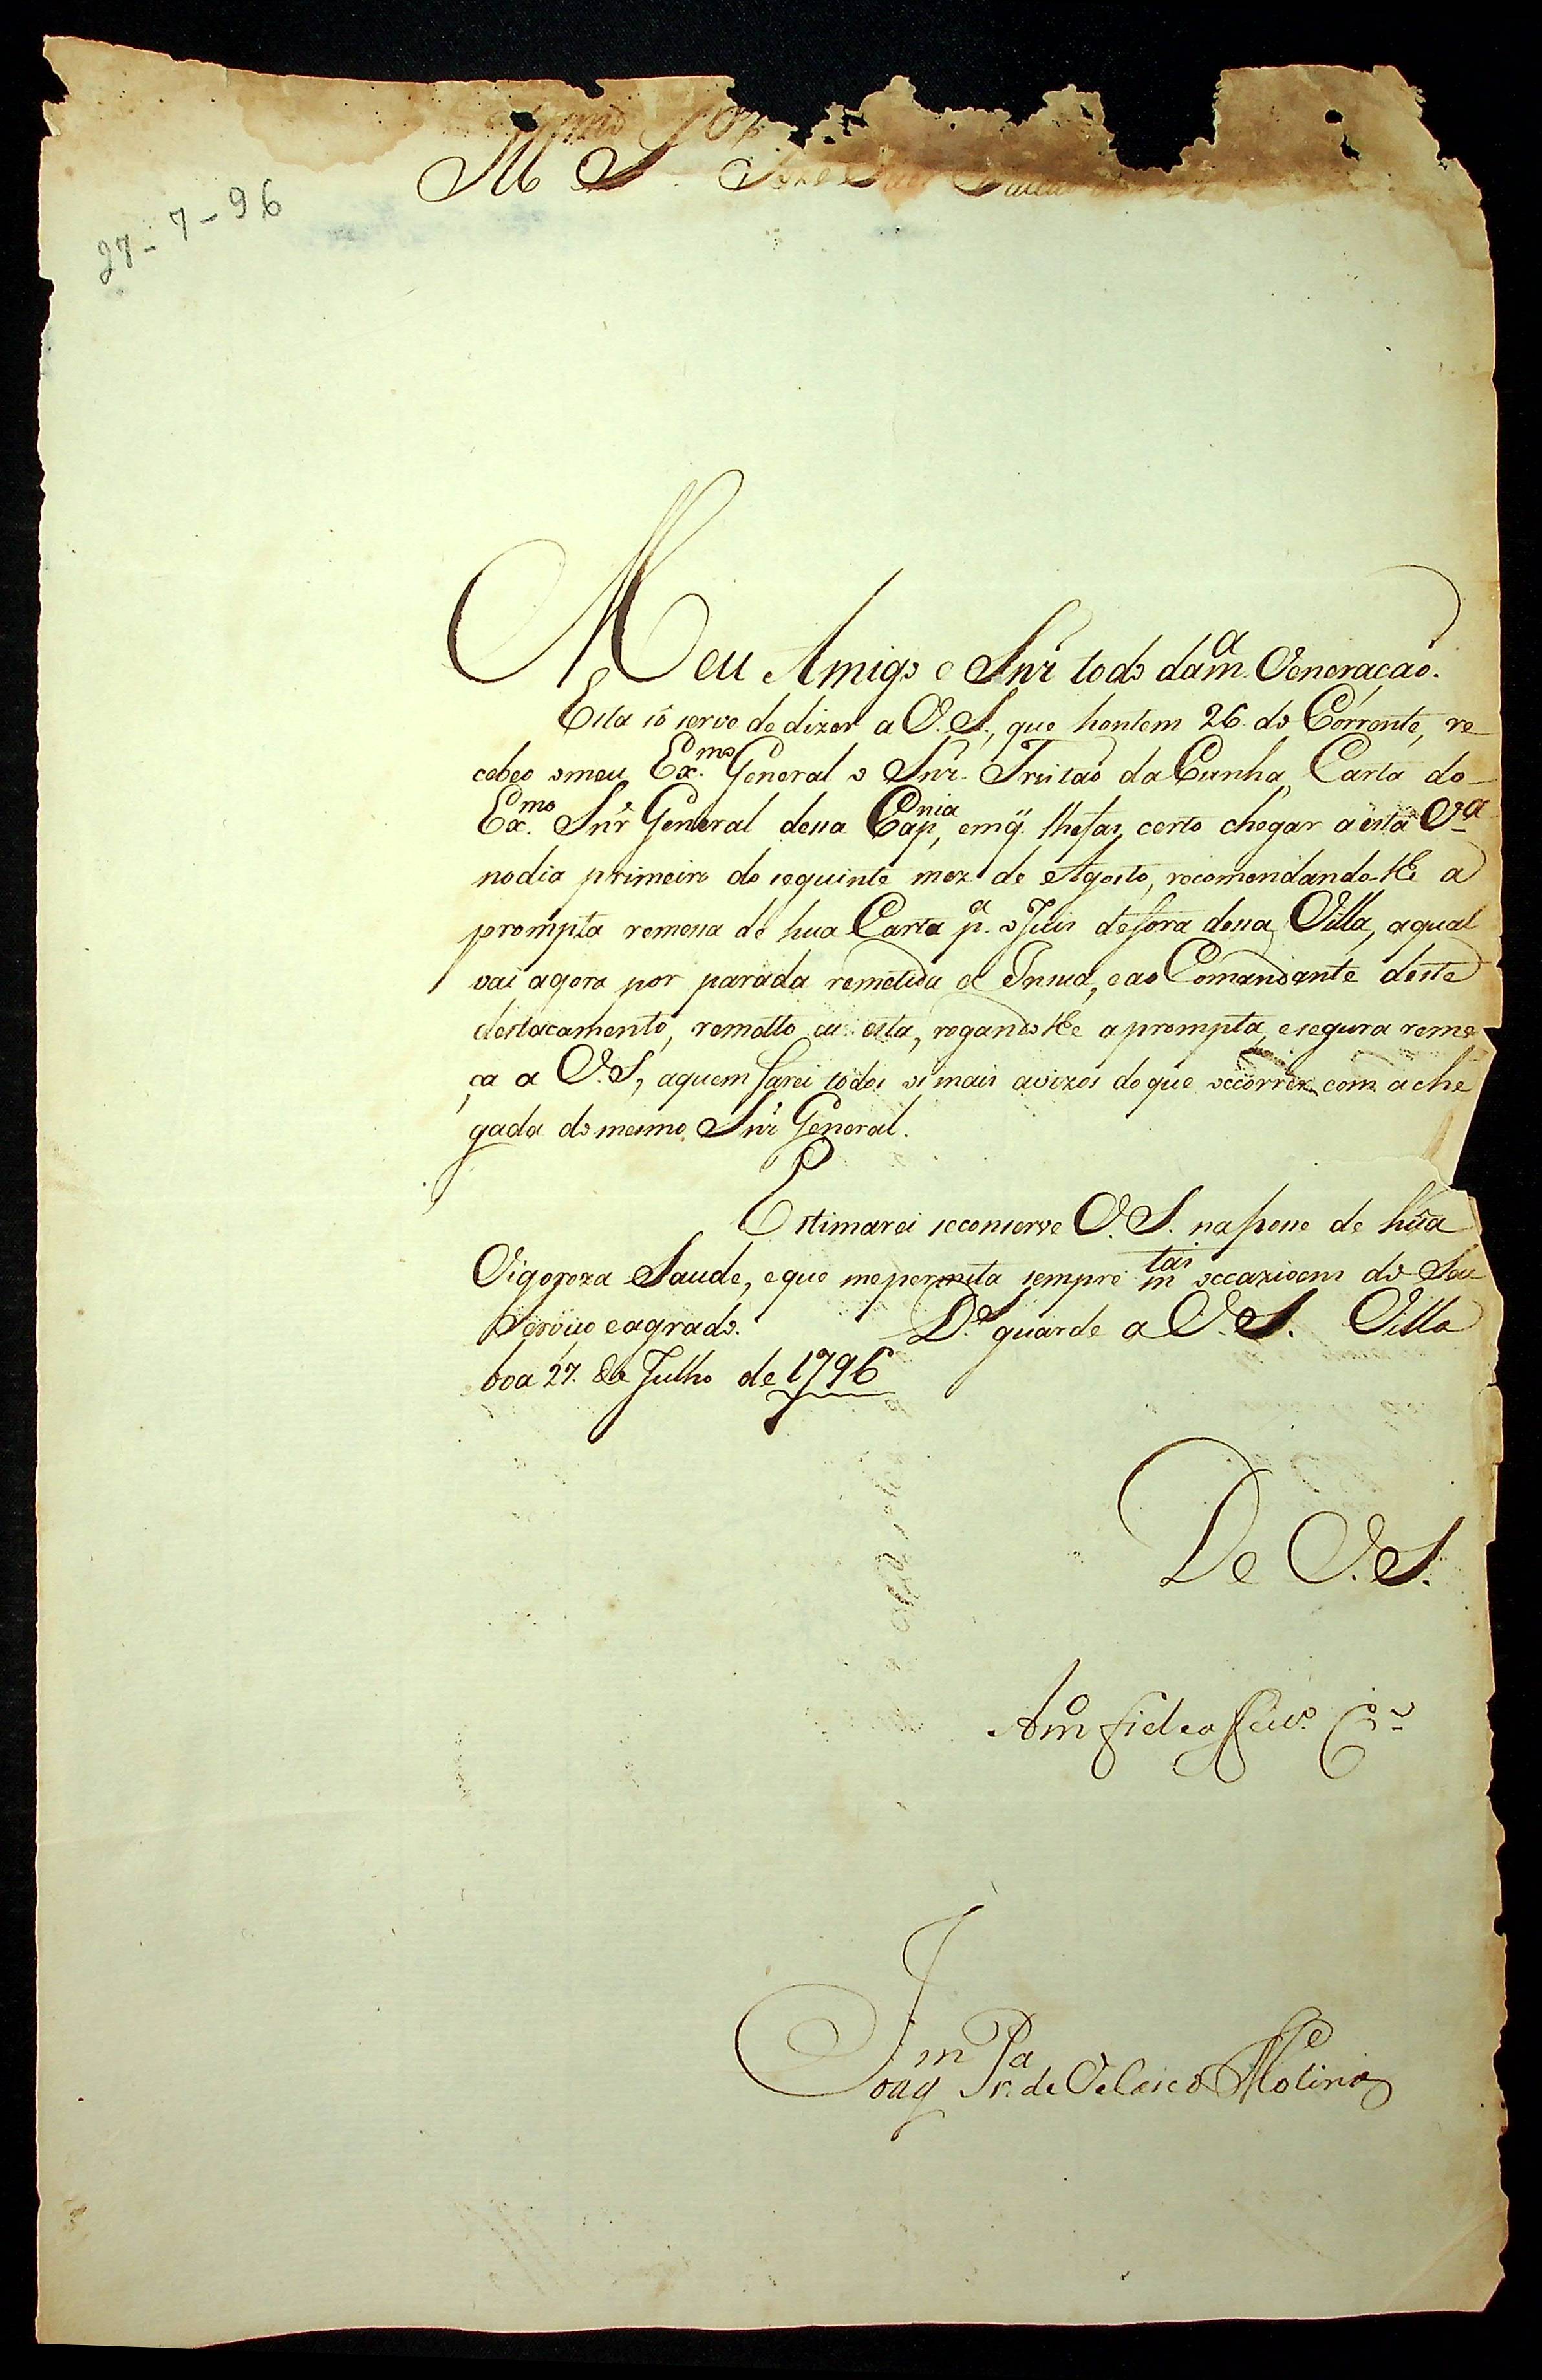 27-7-96
Meu Amigo e Snr todo da m.ª Veneração.
Esta só serve de dizer a V.S., que hontem 26 do Corrente, re
cebeo o meu Ex.mo General o Snr. Tristão da Cunha, Carta do
Ex.mo Snr General dessa Cap.nia, em q̃. lhe fas, certo chegar a esta V.ª
no dia primeiro do seguinte mez de Agosto, recomendando-lhe a
prompta remessa de hua Carta p.ª o Juis de fora dessa Villa, a qual
vai agora por parada remetida a Insua, e ao Comandante deste
destacamento, remetto eu esta, rogando lhe a prompta, e segura reme
ça a V.S., a quem farei todos os mais avizos do que occorrer com a che
gada do mesmo Snr General.
Estimarei se conserve V.S. na posse de hũa
Vigoroza Saude, e que me permita sempre m.tas occazioens do Seu
Serviço e agrado. D.s guarde a V.S. Villa
boa 27. de Julho de 1796
De V.S.
Am.o fiel e
Joaq.m Pr.ª de Velasco Molina